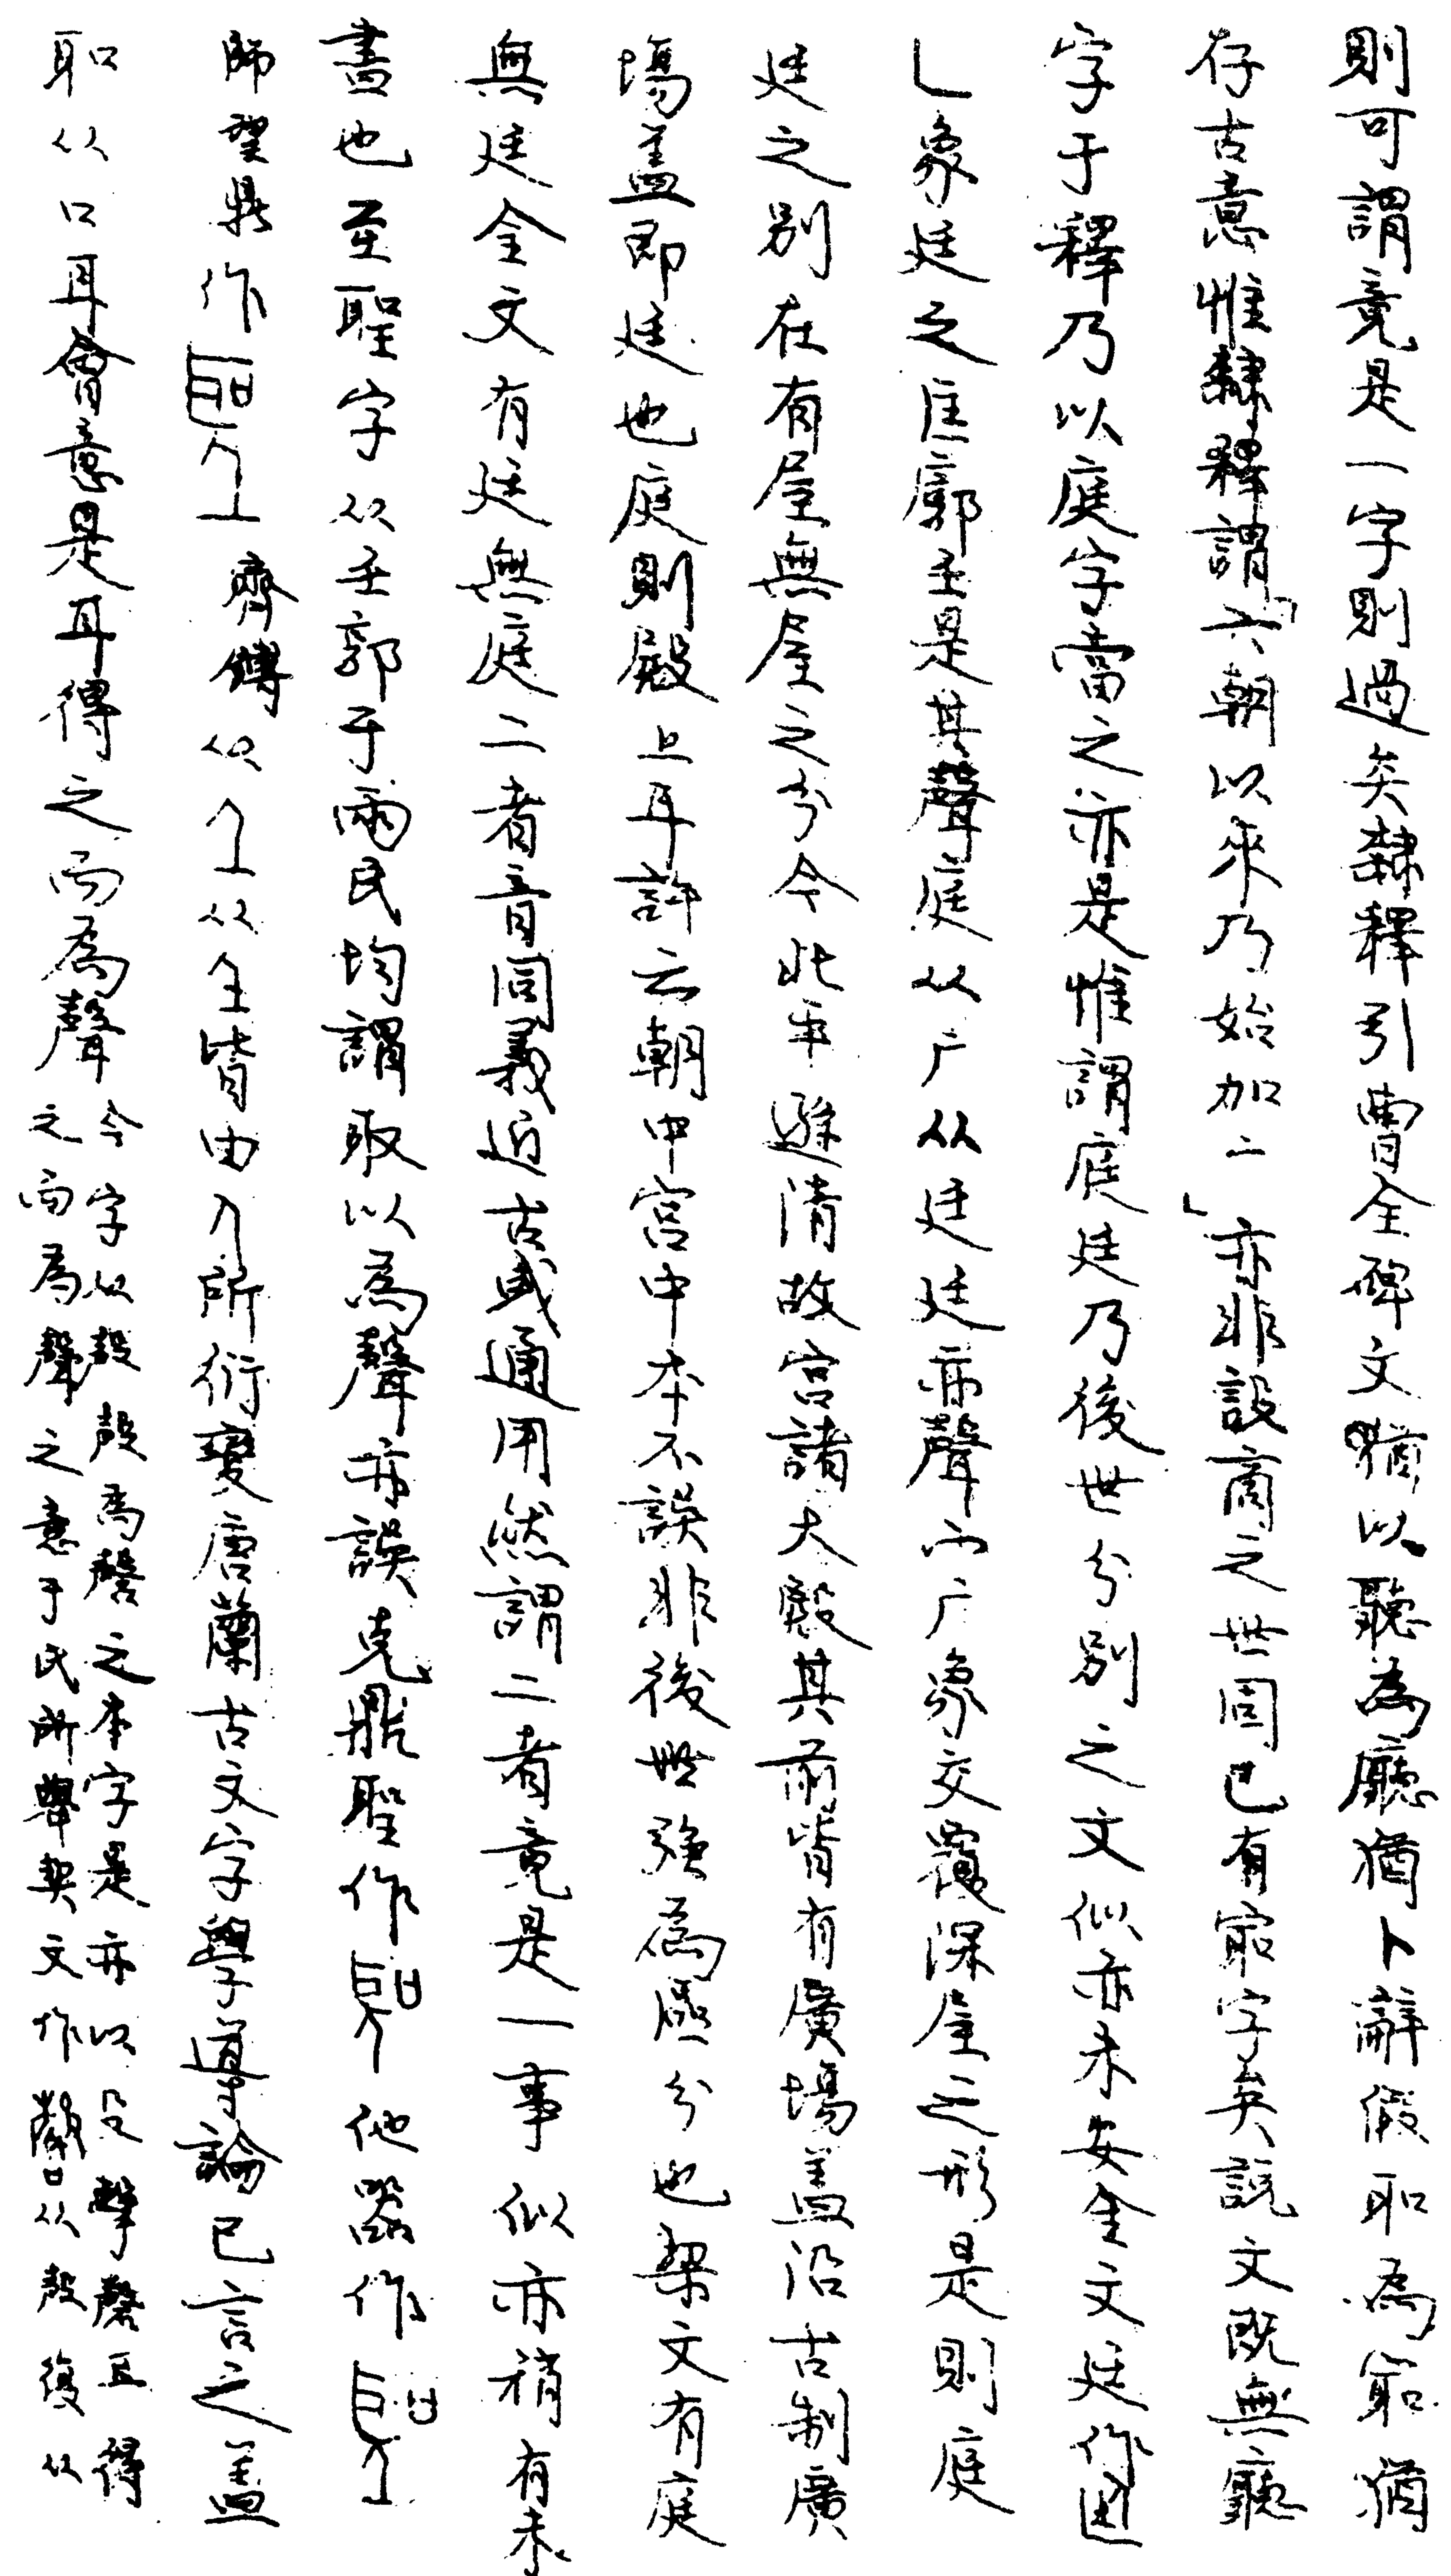 則可謂竟是一字則過矣隸釋引曹全碑文猶以聽為廳猶卜辭假耶為𡧊猶
存古意惟隸釋謂「六朝以來乃始加广」亦非設商之世固已有𡧊字矣説文既無廳
字于釋乃以庭字當之亦是惟謂庭廷乃後世分別之文似亦未安金文廷作
乚象廷之匡廓𡈼是其聲庭从广从廷廷亦聲而广象交覆深屋之形是則庭
廷之別在有屋無屋之分今北平遜清故宮諸大殿其前皆有廣場盖沿古制廣
場盖即廷也庭則殿上耳許云朝中宮中本不誤非後世強為區分也栔文有庭
無廷金文有廷無庭二者音同義近古或通用然謂二者竟是一事似亦稍有未
盡也至聖字从𡈼郭于兩氏均謂𡈼以為聲亦誤克鼎聖作他器作
師望鼎作齊鎛从从𡈼皆由人所衍變唐蘭古文字學導論已言之盖
耶从口耳會意是耳得之而為聲
今字从殸殸為磬之本字是亦以殳擊磬耳得
之而為聲之意于氏所舉契文作从殸復从